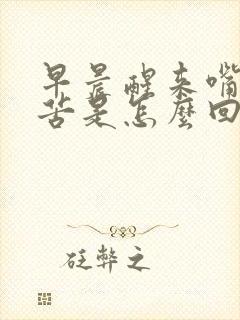 早晨醒来嘴
苦是怎麼回
砭弊之